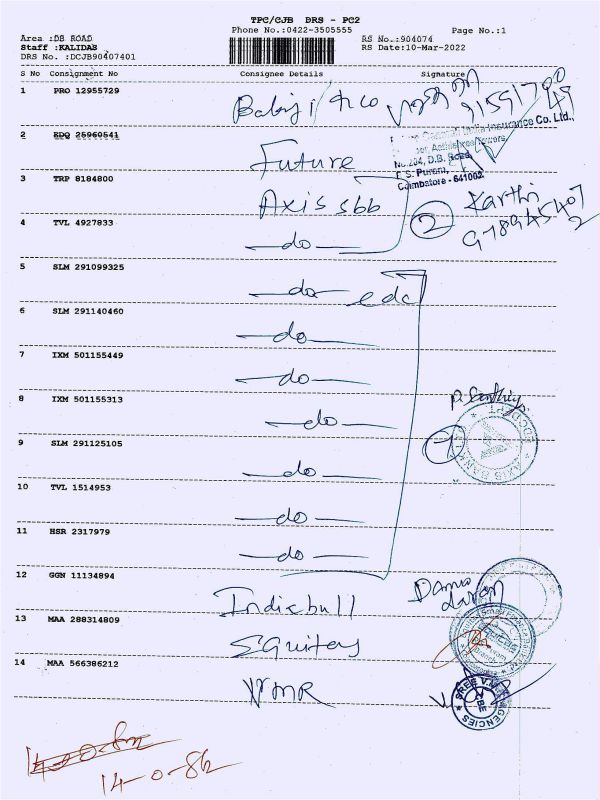 TPC/CJB DRS - PC2
Phone No.:0422-3505555
Page No.:1
Area :DB ROAD
Staff :KALIDAS
DRS No. :DCJB90407401
RS No..:904074
RS Date:10-Mar-2022
S No Consignment No Consignee Details Signature
1 PRO 12955729
2 EDQ 25960541 Future
Insurance Co. Ltd.,
No.204, D.B. Road
R.S. Puram,
Coimbatore - 641002
3 TRP 8184800 Axis sbb
2 Karthi
4 TVL 4927833 - do -
5 SLM 291099325 - do - edc
6 SLM 291140460 - do -
7 IXM 501155449 - do -
8 IXM 501155313 - do -
9 SLM 291125105 - do -
AXIS BANK
10 TVL 1514953 - do -
11 HSR 2317979 - do -
12 GGN 11134894 Indiabull
13 MAA 288314809 Equitas
14 MAA 566386212 VMR
SREE V.M.R. AGENCIES
CBE
14-0-82